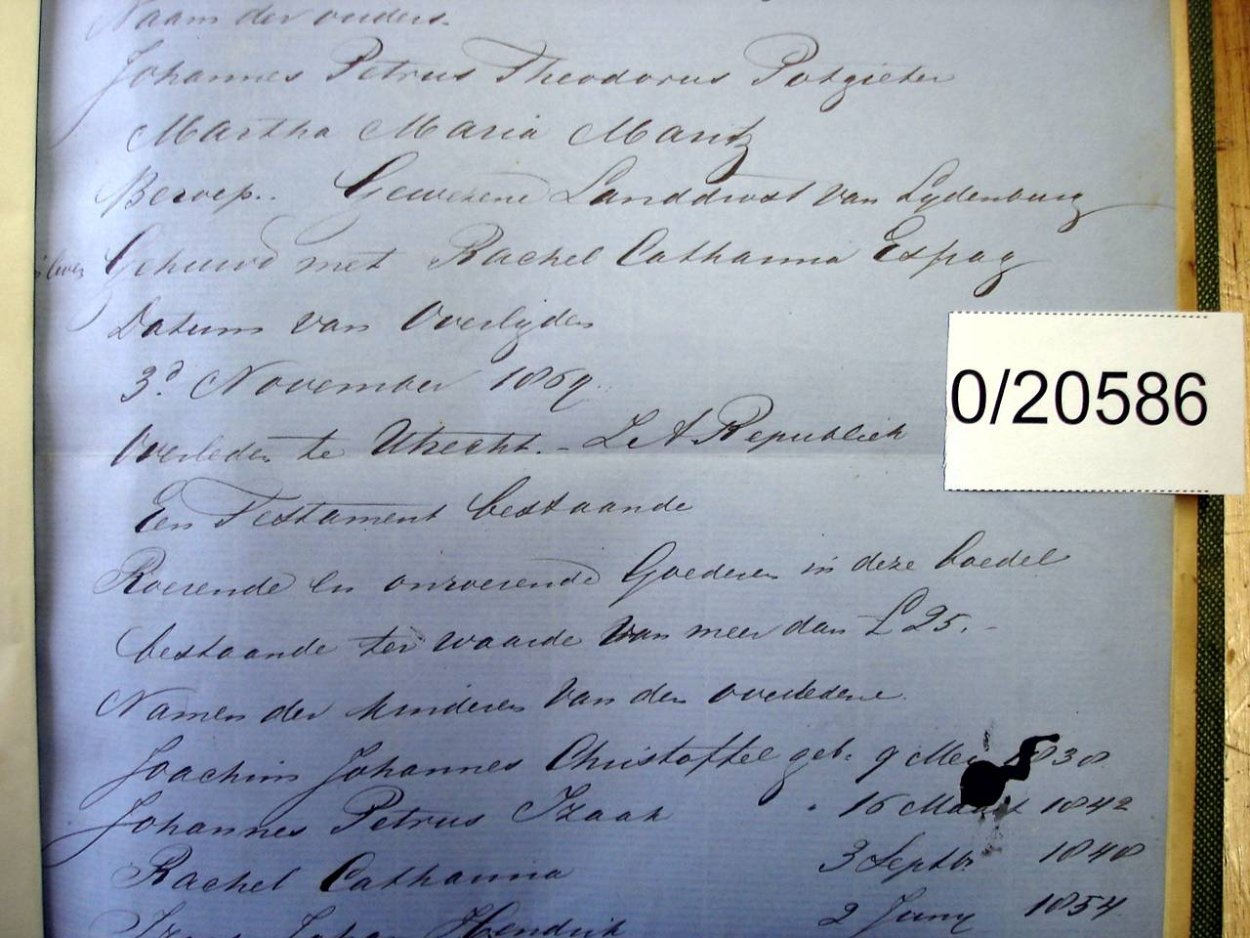 Naam der ouders.
Johannes Petrus Theodorus Potgieter
Martha Maria Maritz
Beroep.. Gewezene Landdrost van Lydenburg
Gehuwd met Rachel Catharina Espag
Datum van Overlijden
3d November 1869.
Overleden te Utrecht. - Z A Republiek
Een Testament bestaande
Roerende en onroerende Goederen in deze boedel
bestaande ter waarde van meer dan £25. -
Namen der kinderen van den overledene
Joachim Johannes Christoffel geb. 9 Mei 1838
Johannes Petrus Izaak " 16 Maart 1842
Rachel Catharina 3 Septbr 1848
Johan Hendrik 2 Juny 1854
0/20586